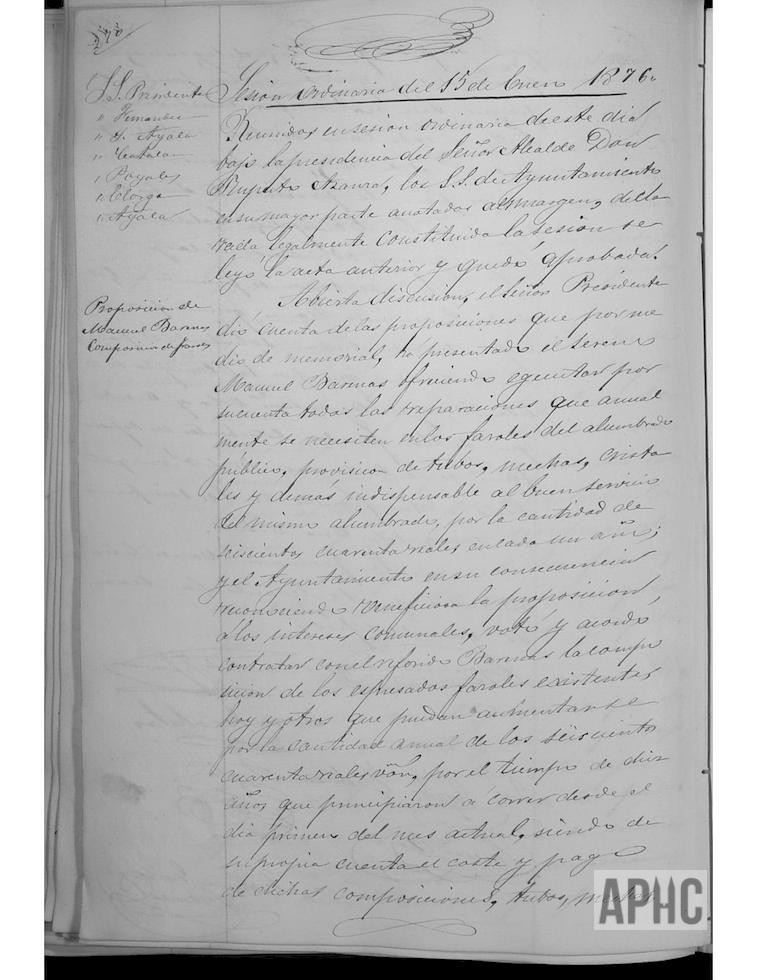 Sesion ordinaria del 15 de Enero 1876.
S.S. Presidente
" Fernandez
" S. Ayala
" Catalan
" Payales
" Clorga
" Ayala
Reunidos en sesion ordinaria de este dia
bajo la presidencia del Señor Alcalde Don
Ruperto Azanza, los S.S. de Ayuntamiento
en su mayor parte anotados al margen, decla
rada legalmente constituida la sesion se
leyó la acta anterior y quedó aprobada.
Proposicion de
Manuel Barenas
Composicion de faroles
Abierta discusion, el señor Presidente
dió cuenta de las proposiciones que por me
dio de memorial, ha presentado el sereno
Manuel Barenas ofreciendo egecutar por
su cuenta todas las reparaciones que anual
mente se necesiten en los faroles del alumbrado
público, provision de tubos, mechas, crista
les y demas indispensable al buen servicio
del mismo alumbrado, por la cantidad de
seiscientos cuarenta reales en cada un año;
y el Ayuntamiento en su consecuencia
reconociendo veneficiosa la proposicion,
a los intereses comunales, votó y acordó
contratar con el referido Barenas la compo
sicion de los espresados faroles existentes
hoy y otros que puedan aumentarse
por la cantidad anual de los seiscientos
cuarenta reales von, por el tiempo de diez
años que principiaron a correr desde el
dia primero del mes actual, siendo de
su propia cuenta el coste y pago
de dichas composiciones, tubos, mechas
APHC